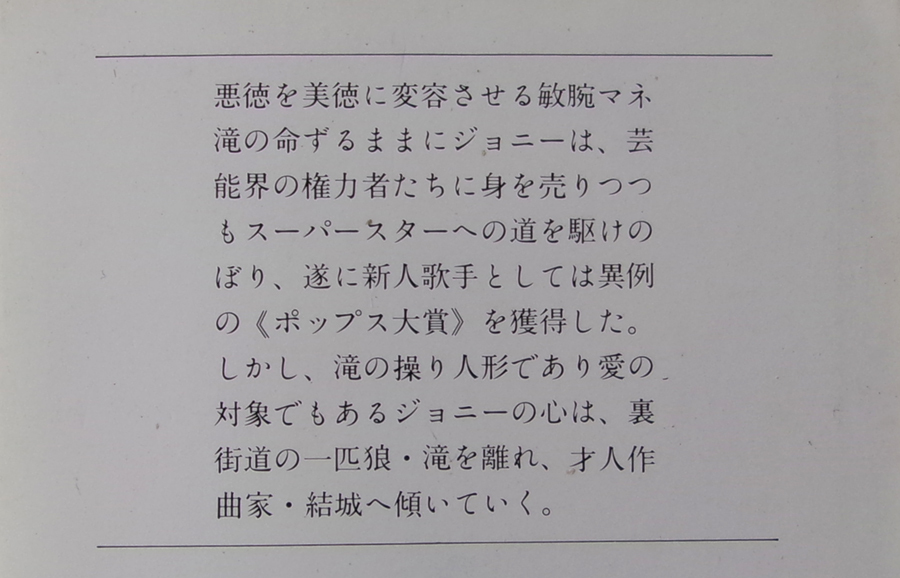 悪徳を美徳に変容させる敏腕マネ
滝の命ずるままにジョニーは、芸
能界の権力者たちに身を売りつつ
もスーパースターへの道を駆けの
ぼり、遂に新人歌手としては異例
の《ポップス大賞》を獲得した。
しかし、滝の操り人形であり愛の
対象でもあるジョニーの心は、裏
街道の一匹狼・滝を離れ、才人作
曲家・結城へ傾いていく。